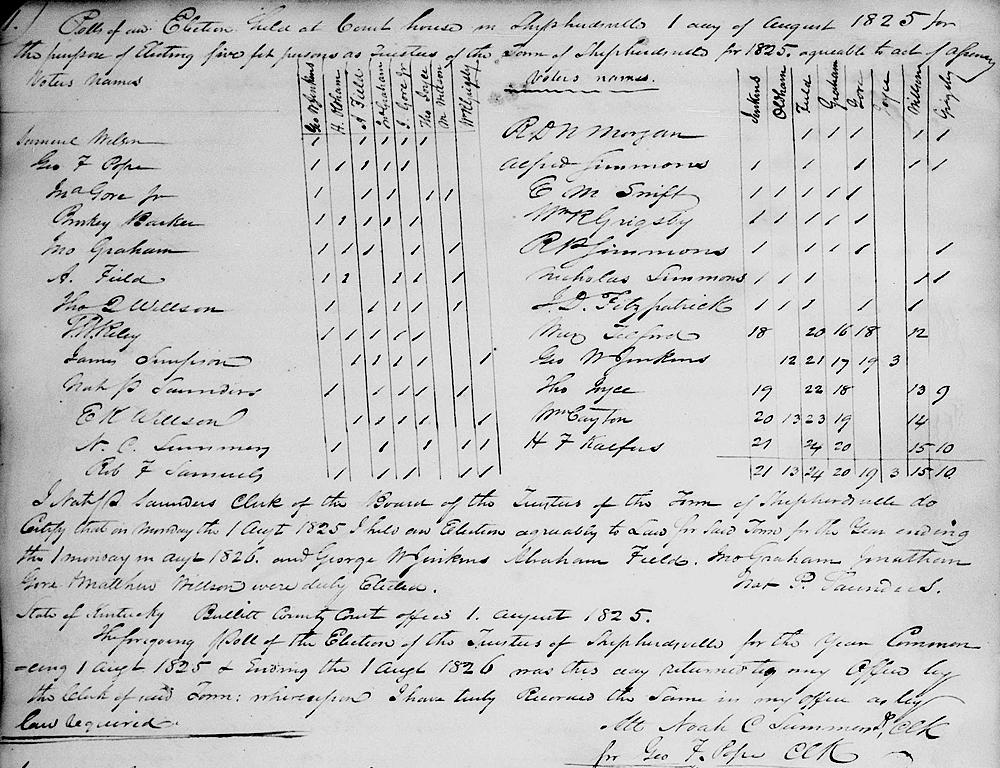 1. Polls of an Election held at Court house in Shepherdsville 1 day of August 1825 for
the purpose of Electing five fit persons as Trustees of the Town of Shepherdsville for 1825. agreable to act of assembly
Voters names Geo W Jenkins H. Oldham A Field Jno Graham J. Gore Jr Tho Joyce M. Wilson Wm R Grigsby Voters names. Jenkins Oldham Field Graham Gore Joyce Willson Grigsby
Samuel Wilson 1 1 1 1 1 R D N Morgan 1 1 1 1 1
Geo F Pope 1 1 1 1 1 Alfred Simmons 1 1 1 1 1
Jna Gore Jr 1 1 1 1 1 E M Swift 1 1 1 1 1
Barker 1 1 1 1 1 Wm R Grigsby 1 1 1 1 1
Jno Graham 1 1 1 1 1 R P Simmons 1 1 1 1 1
A. Field 1 1 1 1 1 Nicholas Simmons 1 1 1 1 1
Tho Q Willson 1 1 1 1 1 J. D. Fitzpatrick 1 1 1 1 1
Riley 1 1 1 1 1 Telford 18 20 16 18 12
James Simpson 1 1 1 1 1 Geo W Jenkins 12 21 17 19 3
Nath P Saunders 1 1 1 1 1 Tho Joyce 19 22 18 13 9
E K Willson 1 1 1 1 1 Wm Cayton 20 13 23 19 14
N. C. Summers 1 1 1 1 1 H F Kalfus 21 24 20 15 10
Rob F Samuels 1 1 1 1 1 21 13 24 20 19 3 15 10
I Nath P Saunders Clerk of the Board of the Trustees of the Town of Shepherdsville do
Certify that on monday the 1 Augt 1825 I held an Election agreeably to Law for said Town for the Year ending
the 1 monday in augt 1826. and George W Jenkins Abraham Field. Jno Graham Jonathan
Gore & Matthew Willson were duly Elected. Nat P. Saunders.
State of Kentucky Bullitt County Court office 1. august 1825.
The foregoing Poll of the Election of the Trustees of Shepherdsville for the Year Commen
=cing 1 augt 1825 & Ending the 1 Augt 1826 was this day returned to my Office by
the Clerk of said Town: whereupon I have truly Recorded the Same in my office as by
law required. Att Noah C Summers D, Clk
for Geo F. Pope CCK